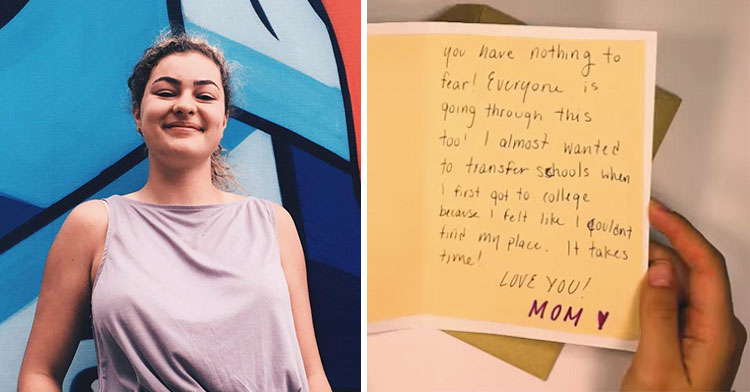 you have nothing to
fear! Everyone is
going through this
too! I almost wanted
to transfer schools when
I first got to college
because I felt like I couldn't
find my place. It takes
time!
LOVE YOU!
MOM ♥